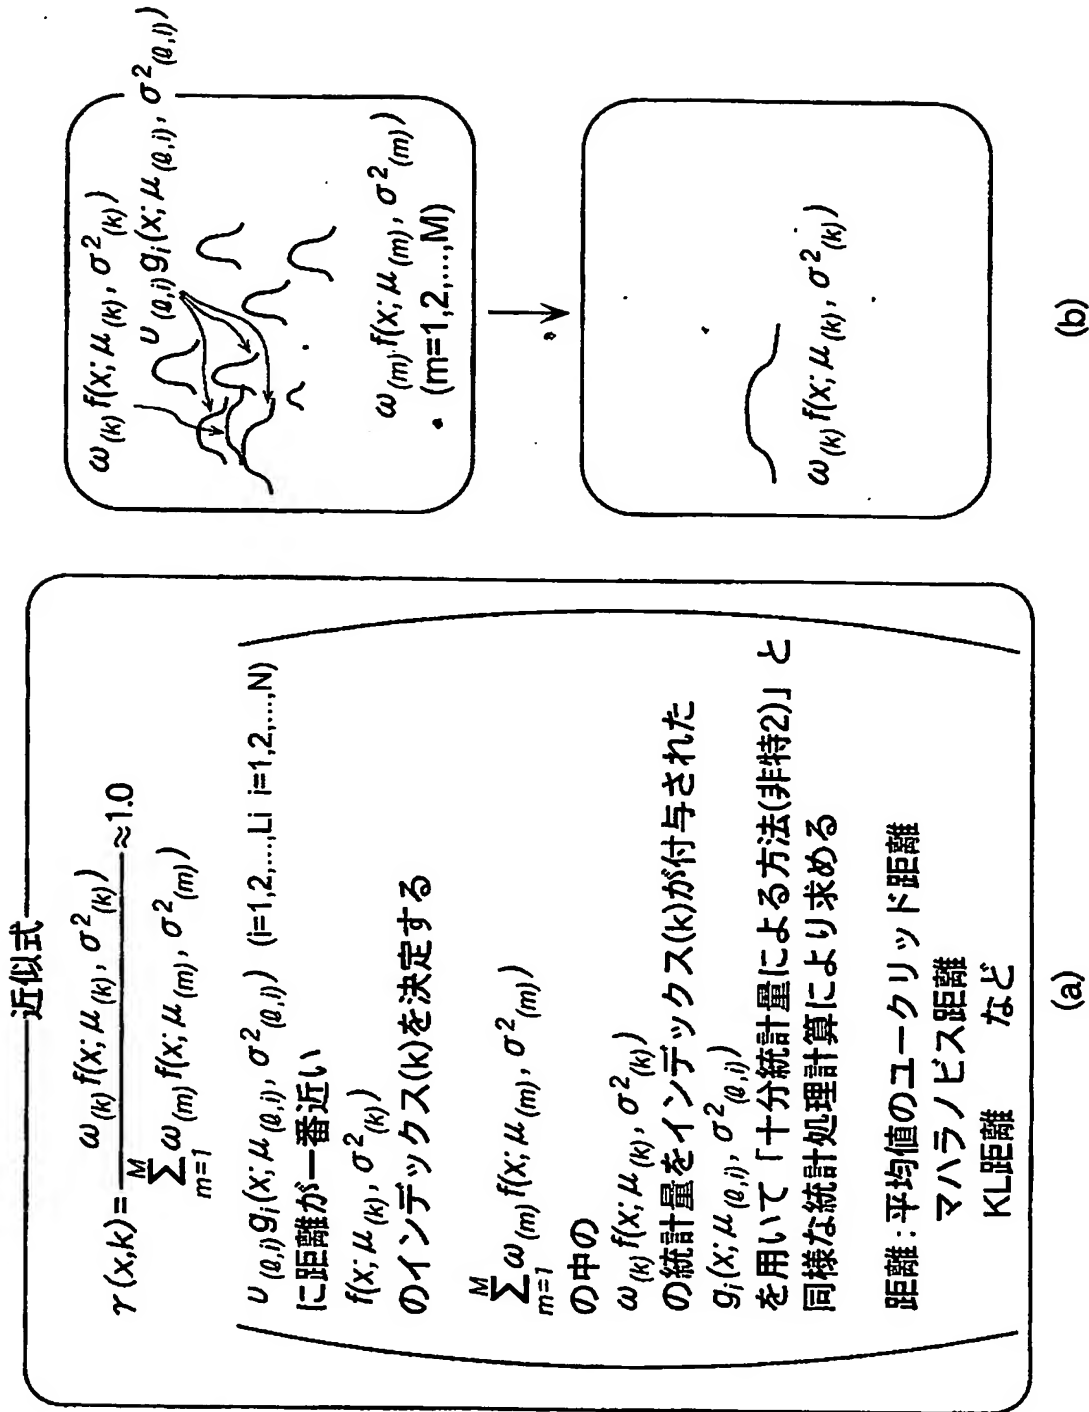 近似式
γ(x,k)= ω(k) f(x; μ(k), σ²(k)) / Σ_{m=1}^{M} ω(m) f(x; μ(m), σ²(m)) ≈1.0
υ(ℓ,i) gi(x; μ(ℓ,i), σ²(ℓ,i)) (i=1,2,...,Li i=1,2,...,N)
に距離が一番近い
f(x; μ(k), σ²(k))
のインデックス(k)を決定する
Σ_{m=1}^{M} ω(m) f(x; μ(m), σ²(m))
の中の
ω(k) f(x; μ(k), σ²(k))
の統計量をインデックス(k)が付与された
gi(x; μ(ℓ,i), σ²(ℓ,i))
を用いて「十分統計量による方法(非特2)」と
同様な統計処理計算により求める
距離:平均値のユークリッド距離
マハラノビス距離
KL距離 など
(a)
ω(k) f(x; μ(k), σ²(k))
υ(ℓ,i) gi(x; μ(ℓ,i), σ²(ℓ,i))
ω(m) f(x; μ(m), σ²(m))
(m=1,2,...,M)
ω(k) f(x; μ(k), σ²(k))
(b)